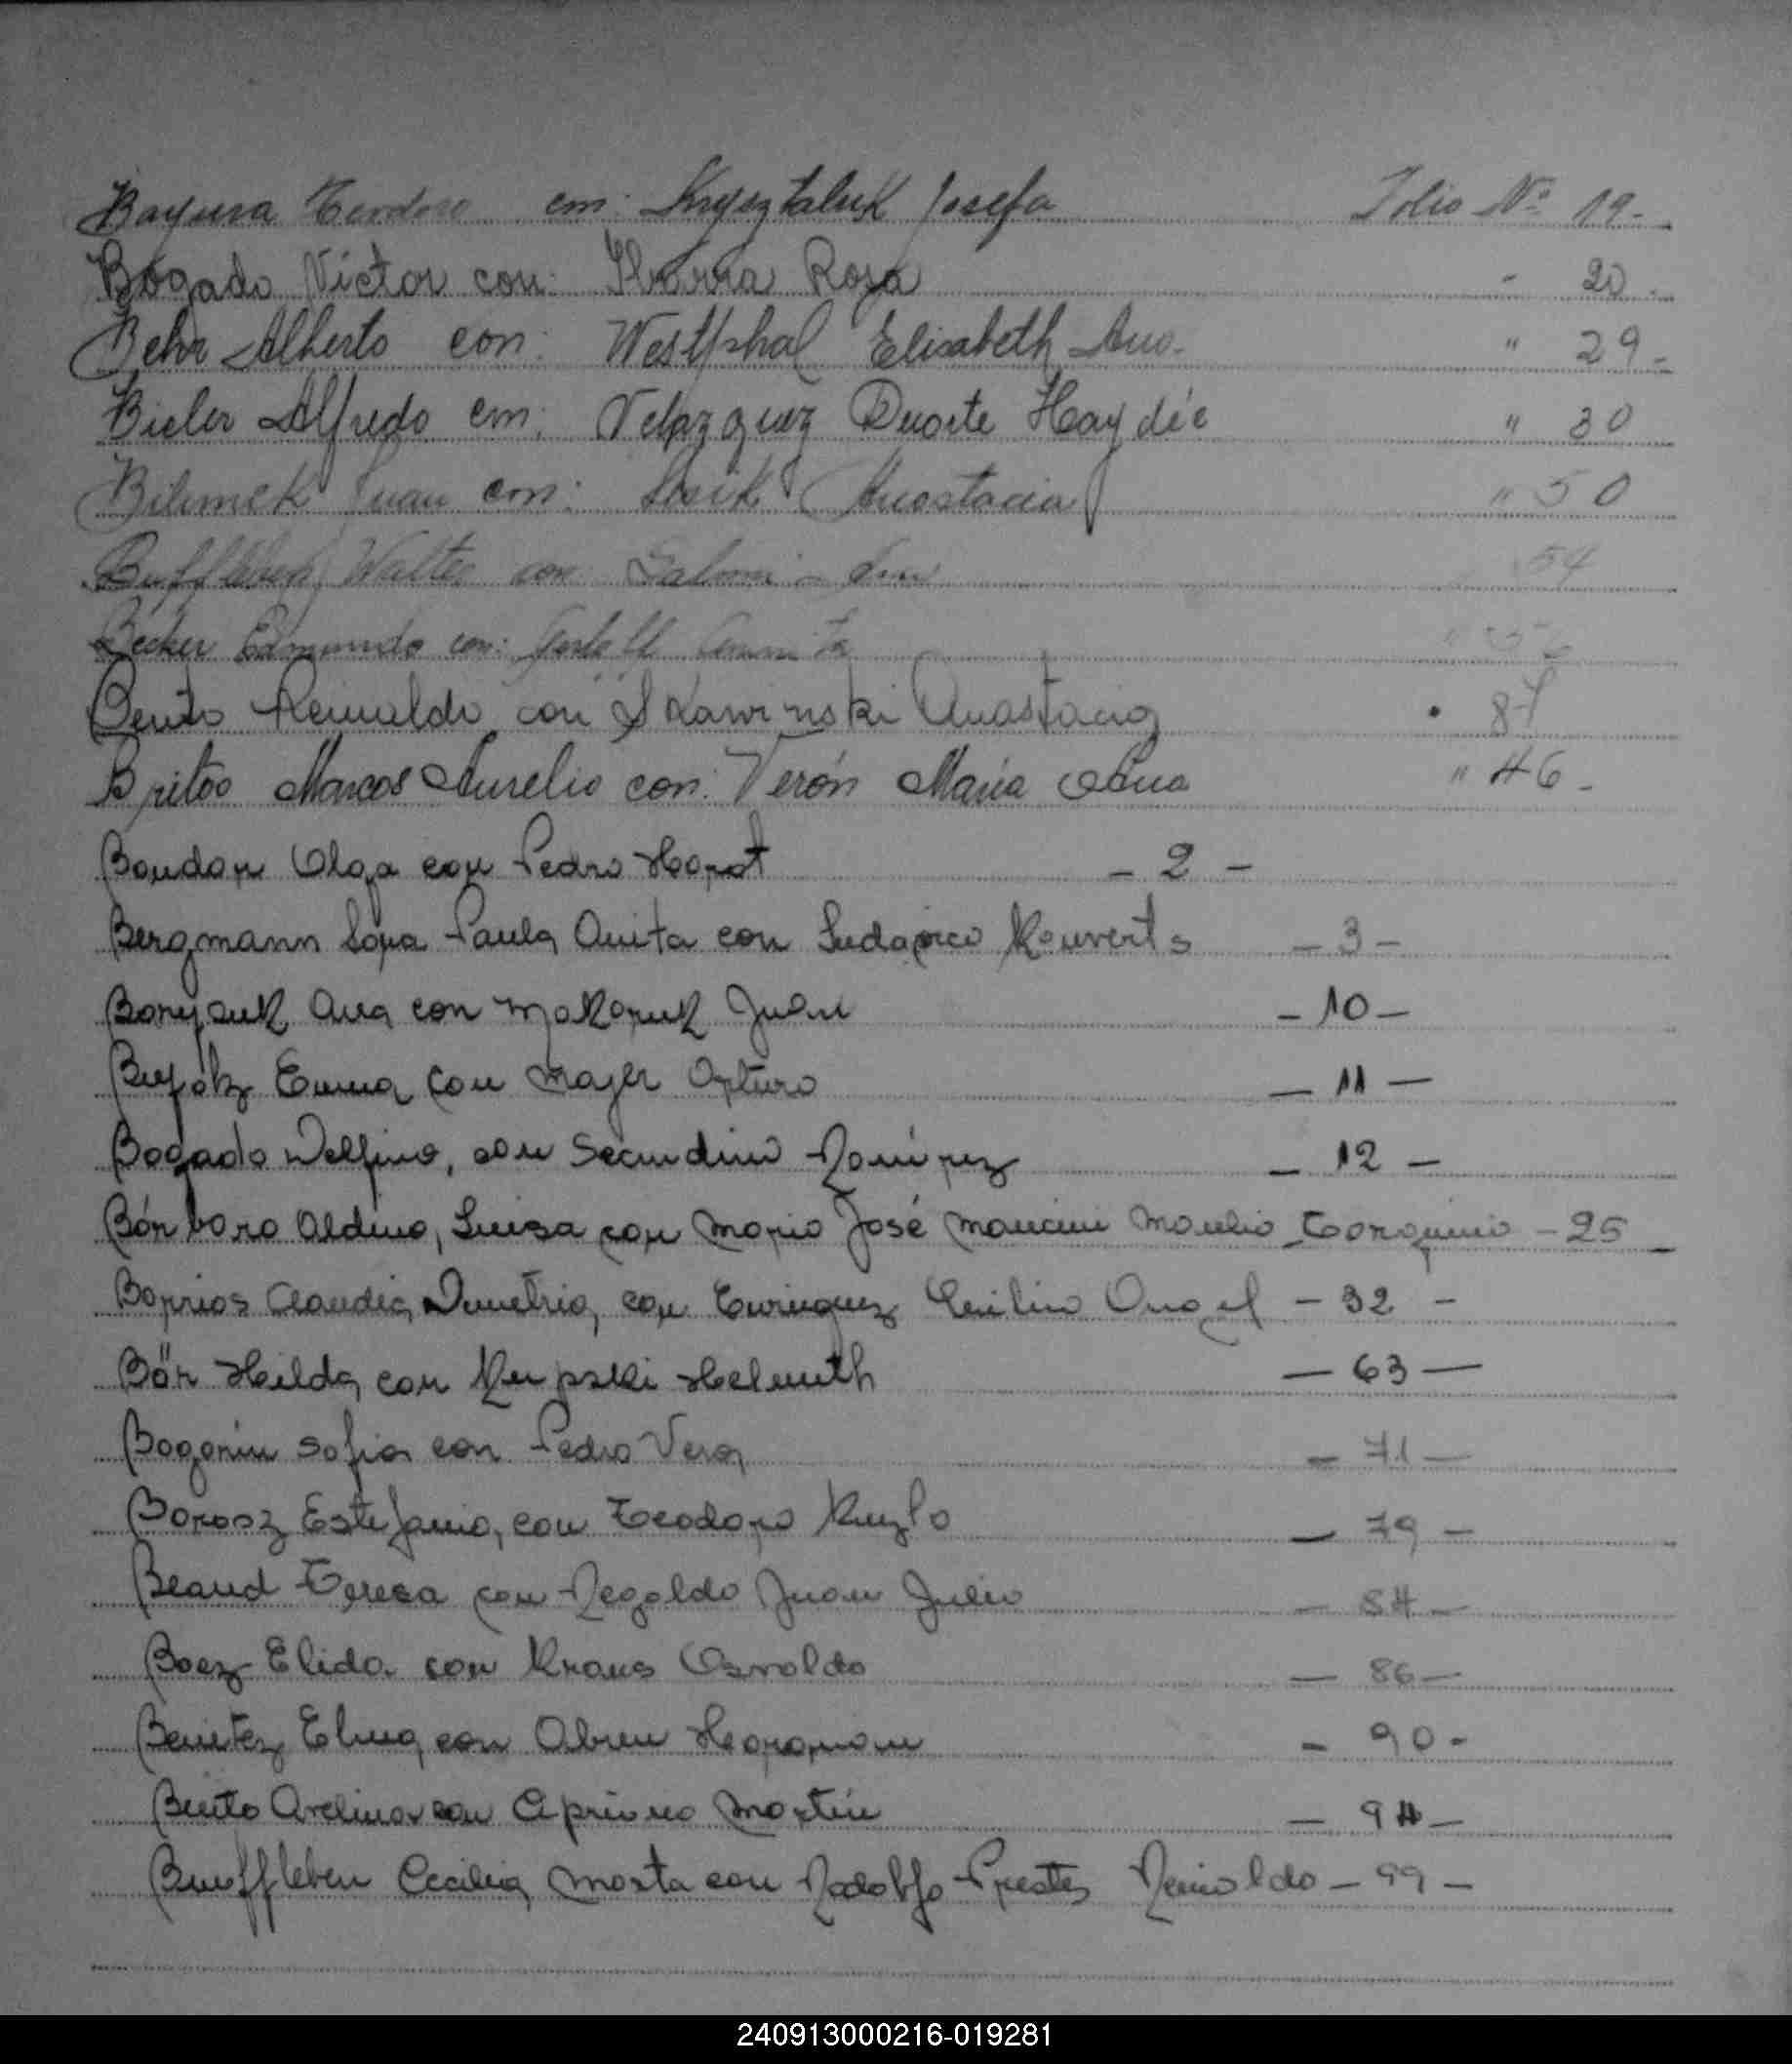 Bayura Teodoro con: Krysztaluk Josefa Folio Nº 19-
Bogado Victor con: Ibarra Rosa - 20.
Behr Alberto con: Westphal Elisabeth Ana- " 29-
Bieler Alfredo con: Velazquez Duarte Haydée " 30
Bilimek Juan con: Anastacia " 50
Walter con 54
Becker Edmundo con:
Bento Reinaldo con Skawinski Anastacia
Britos Marcos Aurelio con: Verón María Ana " 46-
Olga con Pedro - 2 -
Bergmann Paula Anita con - 3 -
Ana con Makaruk Juan - 10 -
Emma con Majer Arturo - 11 -
Bogado Delfina, con Secundino Ramírez - 12 -
Bárbaro Aldina, Luisa con Mario José Mancini Manlio Torquinio - 25 -
Barrios Claudia Demetria, con Enriquez Cecilio Angel - 32 -
Bär Hilda con Krupski Helmuth - 63 -
Bogarin Sofia con Pedro Vera - 71 -
Borosz Estefania, con Teodoro - 79 -
Beaud Teresa con Regaldo Juan Julio - 84 -
Baez Elida con Kraus Osvaldo - 86 -
Benitez Elma con Abreu - 90 -
Bento Avelina con Martin - 94 -
Buuffleben Cecilia Marta con Rodolfo Prestes Reinoldo - 99 -
240913000216-019281